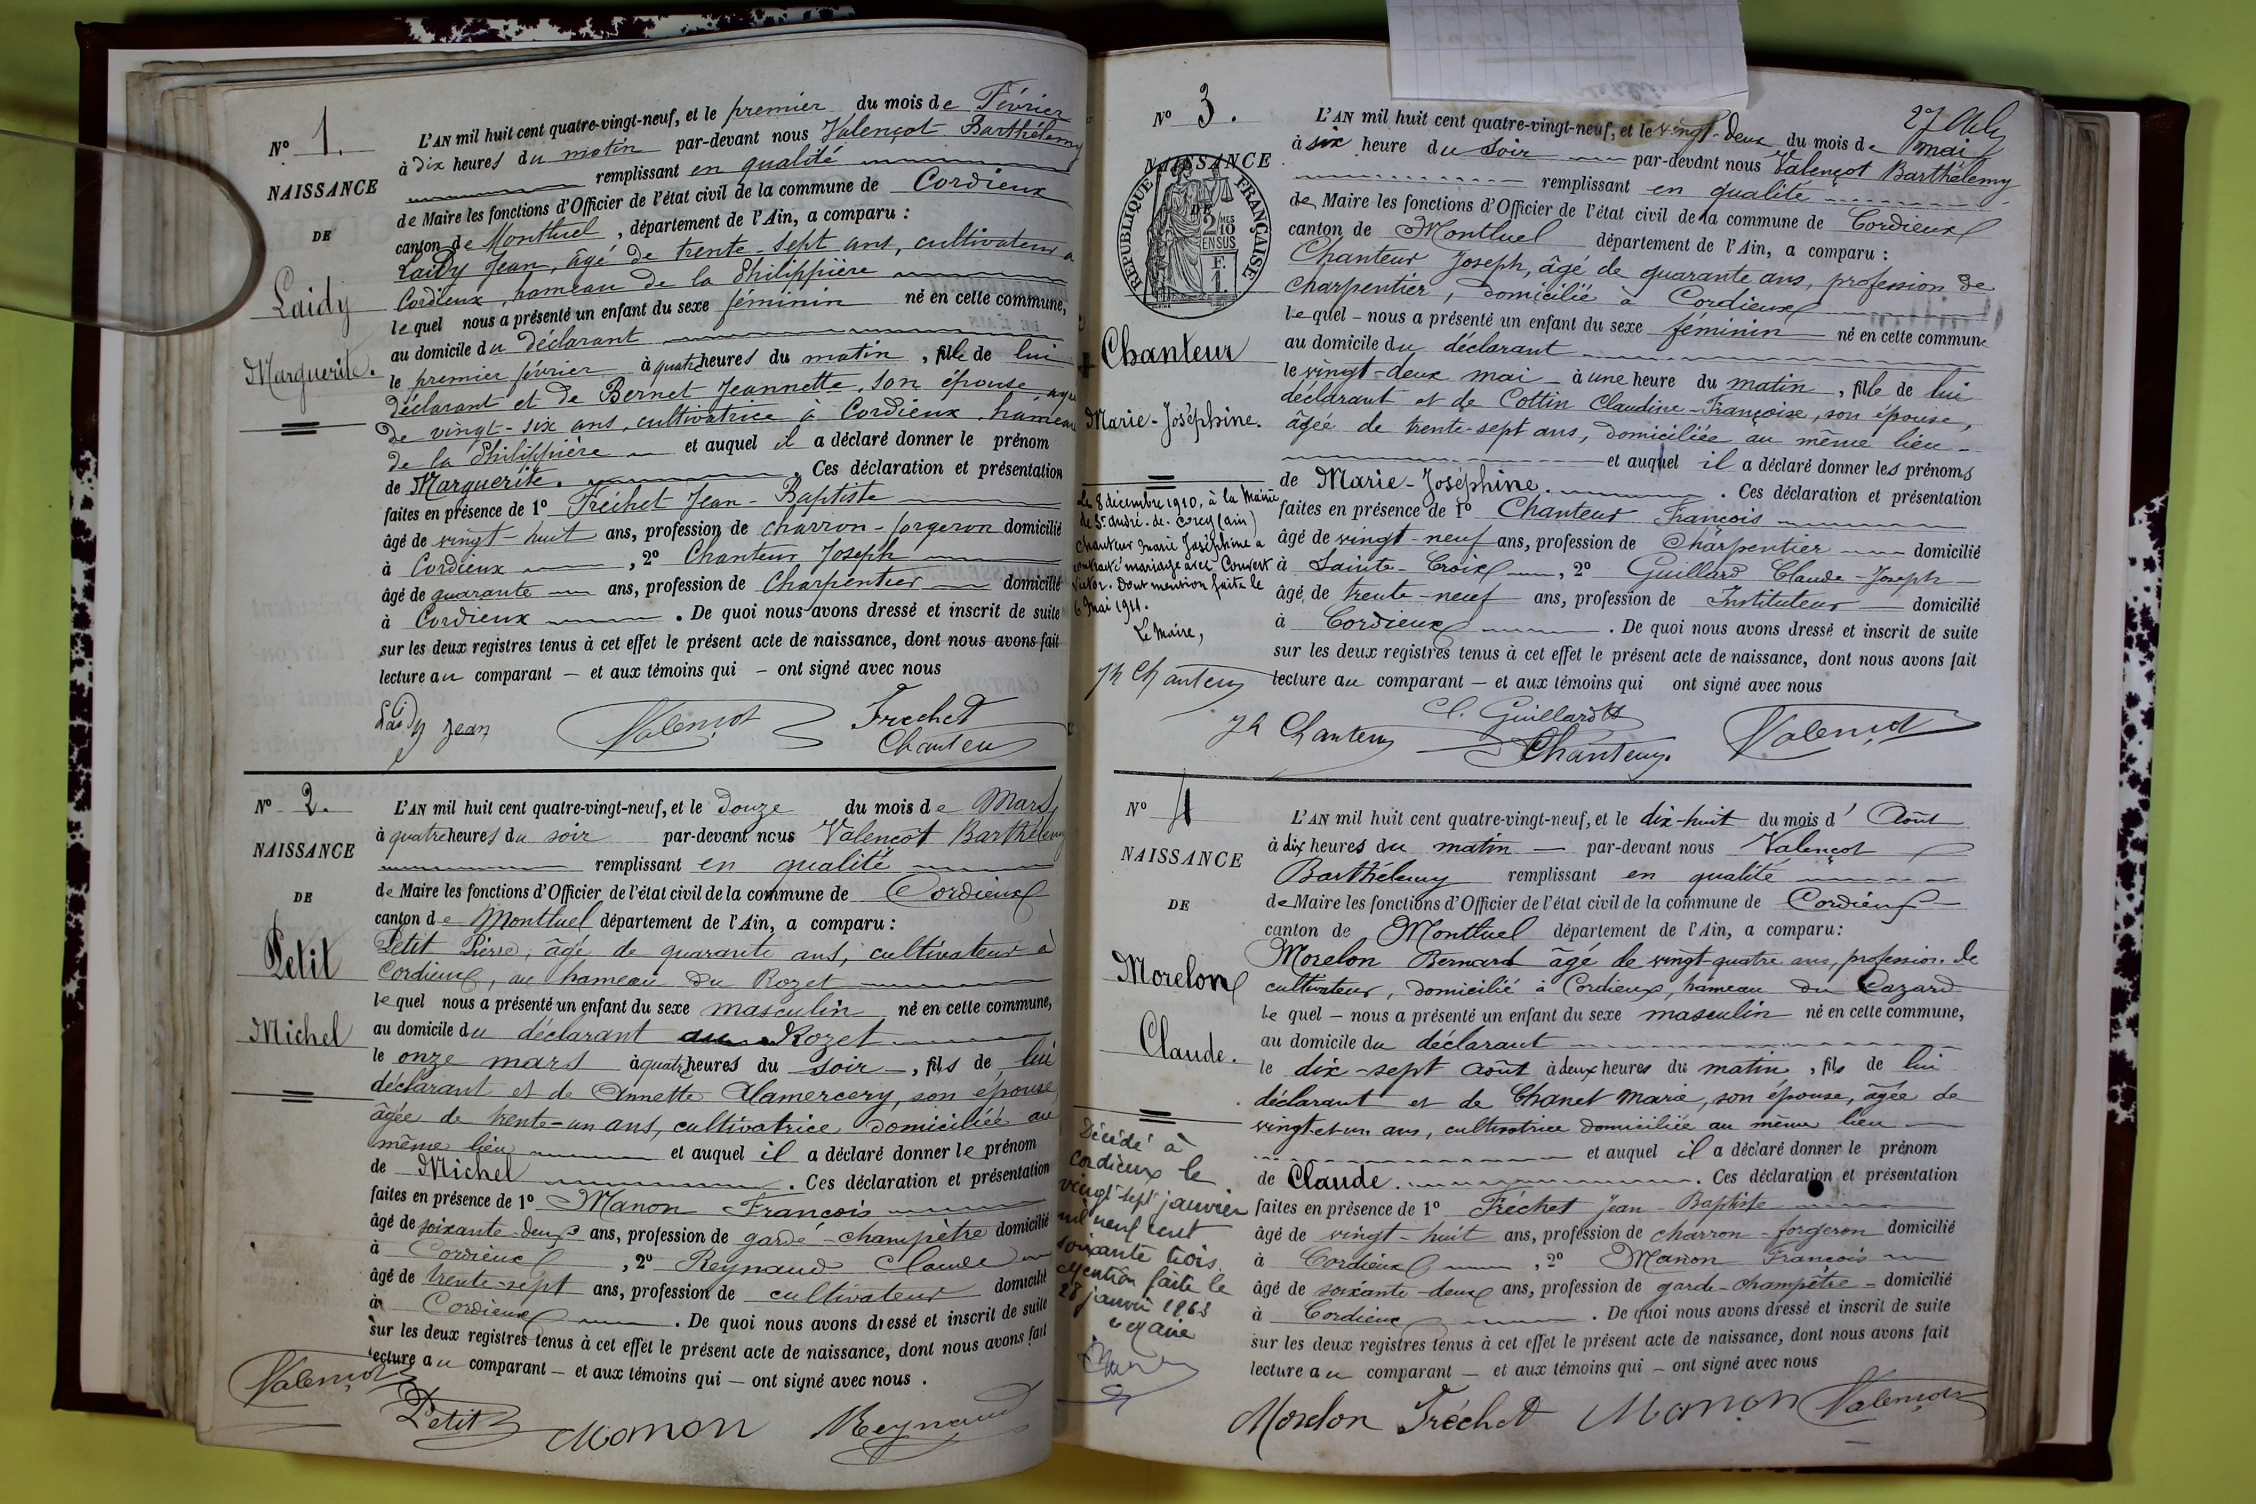 N° 1.
NAISSANCE
DE
Laidy
Marguerite.
L'AN mil huit cent quatre-vingt-neuf, et le premier du mois de Février
à dix heures du matin par-devant nous Valençot Barthélemy
remplissant en qualité
de Maire les fonctions d'Officier de l'état civil de la commune de Cordieux
canton de Montluel, département de l'Ain, a comparu :
Laidy Jean, âgé de trente-sept ans, cultivateur à
Cordieux, hameau de la Philippière
lequel nous a présenté un enfant du sexe féminin né en cette commune,
au domicile du déclarant
le premier février à quatre heures du matin, fille de lui
déclarant et de Bernet Jeannette, son épouse, agée
de vingt-six ans, cultivatrice à Cordieux, hameau
de la Philippière et auquel il a déclaré donner le prénom
de Marguerite. Ces déclaration et présentation
faites en présence de 1° Fréchet Jean-Baptiste
âgé de vingt-huit ans, profession de charron-forgeron domicilié
à Cordieux, 2° Chanteur Joseph
âgé de quarante ans, profession de Charpentier domicilié
à Cordieux. De quoi nous avons dressé et inscrit de suite
sur les deux registres tenus à cet effet le présent acte de naissance, dont nous avons fait
lecture au comparant — et aux témoins qui — ont signé avec nous
Laidy Jean Valençot Frechet
Chanteur
N° 2.
NAISSANCE
DE
Petit
Michel
L'AN mil huit cent quatre-vingt-neuf, et le Douze du mois de Mars
à quatre heures du soir par-devant nous Valençot Barthélemy
remplissant en qualité
de Maire les fonctions d'Officier de l'état civil de la commune de Cordieux
canton de Montluel département de l'Ain, a comparu :
Petit Pierre, âgé de quarante ans, cultivateur à
Cordieux, au hameau du Rozet
lequel nous a présenté un enfant du sexe masculin né en cette commune,
au domicile du déclarant au Rozet
le onze mars à quatre heures du soir, fils de lui
déclarant et de Annette Alamercery, son épouse
âgée de trente-un ans, cultivatrice domiciliée au
même lieu et auquel il a déclaré donner le prénom
de Michel. Ces déclaration et présentation
faites en présence de 1° Manon François
âgé de soixante-deux ans, profession de garde-champêtre domicilié
à Cordieux, 2° Reynaud Claude
âgé de trente-sept ans, profession de cultivateur domicilié
à Cordieux. De quoi nous avons dressé et inscrit de suite
sur les deux registres tenus à cet effet le présent acte de naissance, dont nous avons fait
lecture au comparant — et aux témoins qui — ont signé avec nous.
Valençot
Petit Manon Reynaud
N° 3.
NAISSANCE
DE
RÉPUBLIQUE FRANÇAISE
2/10 MES
EN SUS
F.
1.
Chanteur
Marie-Joséphine.
Le 8 décembre 1910, à la Mairie
de St André-de-Corcy (ain)
Chanteur Marie Joséphine a
contracté mariage avec Convert
Victor. Dont mention faite le
6 Mai 1911.
Le Maire,
Jh Chanteur
L'AN mil huit cent quatre-vingt-neuf, et le vingt-deux du mois de mai
à six heure du soir par-devant nous Valençot Barthélemy
remplissant en qualité
de Maire les fonctions d'Officier de l'état civil de la commune de Cordieux
canton de Montluel département de l'Ain, a comparu :
Chanteur Joseph, âgé de quarante ans, profession de
charpentier, domiciliée à Cordieux
lequel — nous a présenté un enfant du sexe féminin né en cette commune
au domicile du déclarant
le vingt-deux mai — à une heure du matin, fille de lui
déclarant et de Cottin Claudine-Françoise, son épouse,
âgée de trente-sept ans, domiciliée au même lieu
et auquel il a déclaré donner les prénoms
de Marie-Joséphine. Ces déclaration et présentation
faites en présence de 1° Chanteur François
âgé de vingt-neuf ans, profession de Charpentier domicilié
à Sainte-Croix, 2° Guillard Claude-Joseph
âgé de trente-neuf ans, profession de Instituteur domicilié
à Cordieux. De quoi nous avons dressé et inscrit de suite
sur les deux registres tenus à cet effet le présent acte de naissance, dont nous avons fait
lecture au comparant — et aux témoins qui ont signé avec nous
Jh Chanteur C. Guillard Chanteur Valençot
N° 4
NAISSANCE
DE
Morelon
Claude.
Décédé à
Cordieux le
vingt-sept janvier
mil neuf cent
soixante trois.
Mention faite le
28 janvier 1963
Le Maire
L'AN mil huit cent quatre-vingt-neuf, et le dix-huit du mois d'Août
à dix heures du matin — par-devant nous Valençot
Barthélemy remplissant en qualité
de Maire les fonctions d'Officier de l'état civil de la commune de Cordieux
canton de Montluel département de l'Ain, a comparu :
Morelon Bernard âgé de vingt-quatre ans, profession de
cultivateur, domicilié à Cordieux, hameau du Cazard
lequel — nous a présenté un enfant du sexe masculin né en cette commune,
au domicile du déclarant
le dix-sept Août à deux heures du matin, fils de lui
déclarant et de Chanel Marie, son épouse, âgée de
vingt-et-un ans, cultivatrice domiciliée au même lieu
et auquel il a déclaré donner le prénom
de Claude. Ces déclaration et présentation
faites en présence de 1° Fréchet Jean-Baptiste
âgé de vingt-huit ans, profession de charron-forgeron domicilié
à Cordieux, 2° Manon François
âgé de soixante-deux ans, profession de garde-champêtre — domicilié
à Cordieux. De quoi nous avons dressé et inscrit de suite
sur les deux registres tenus à cet effet le présent acte de naissance, dont nous avons fait
lecture au comparant — et aux témoins qui — ont signé avec nous
Morelon Fréchet Manon Valençot